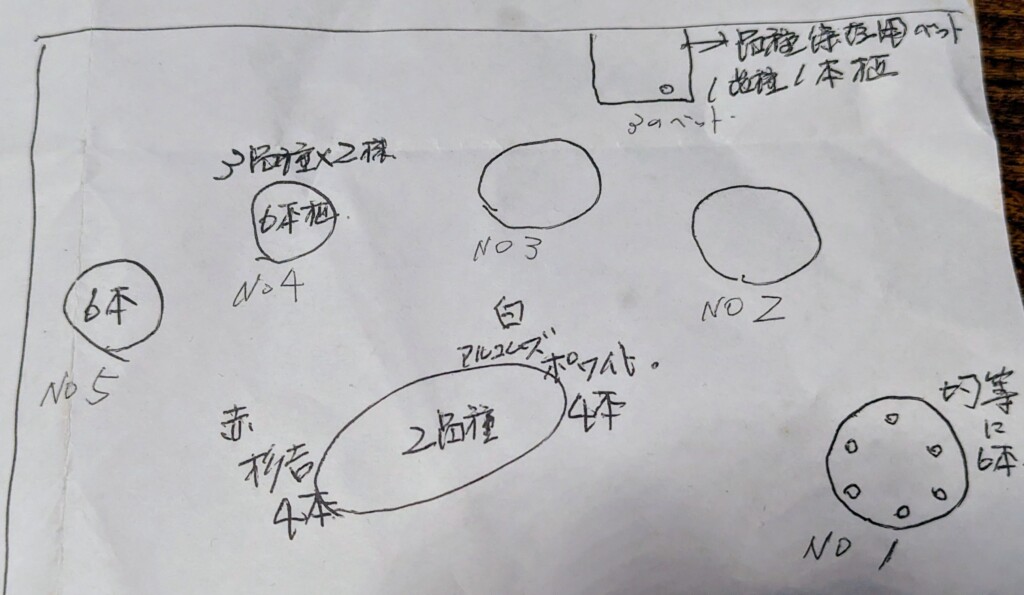 →品種保存用ベット
1品種1本植
3のベット.
3品種×2種
6本植.
NO 4
NO 3
NO 2
6本
NO 5
白
アルコレーズ
ホワイト.
4本
2品種
赤
杉吉
4本
均等
に
6本.
NO 1